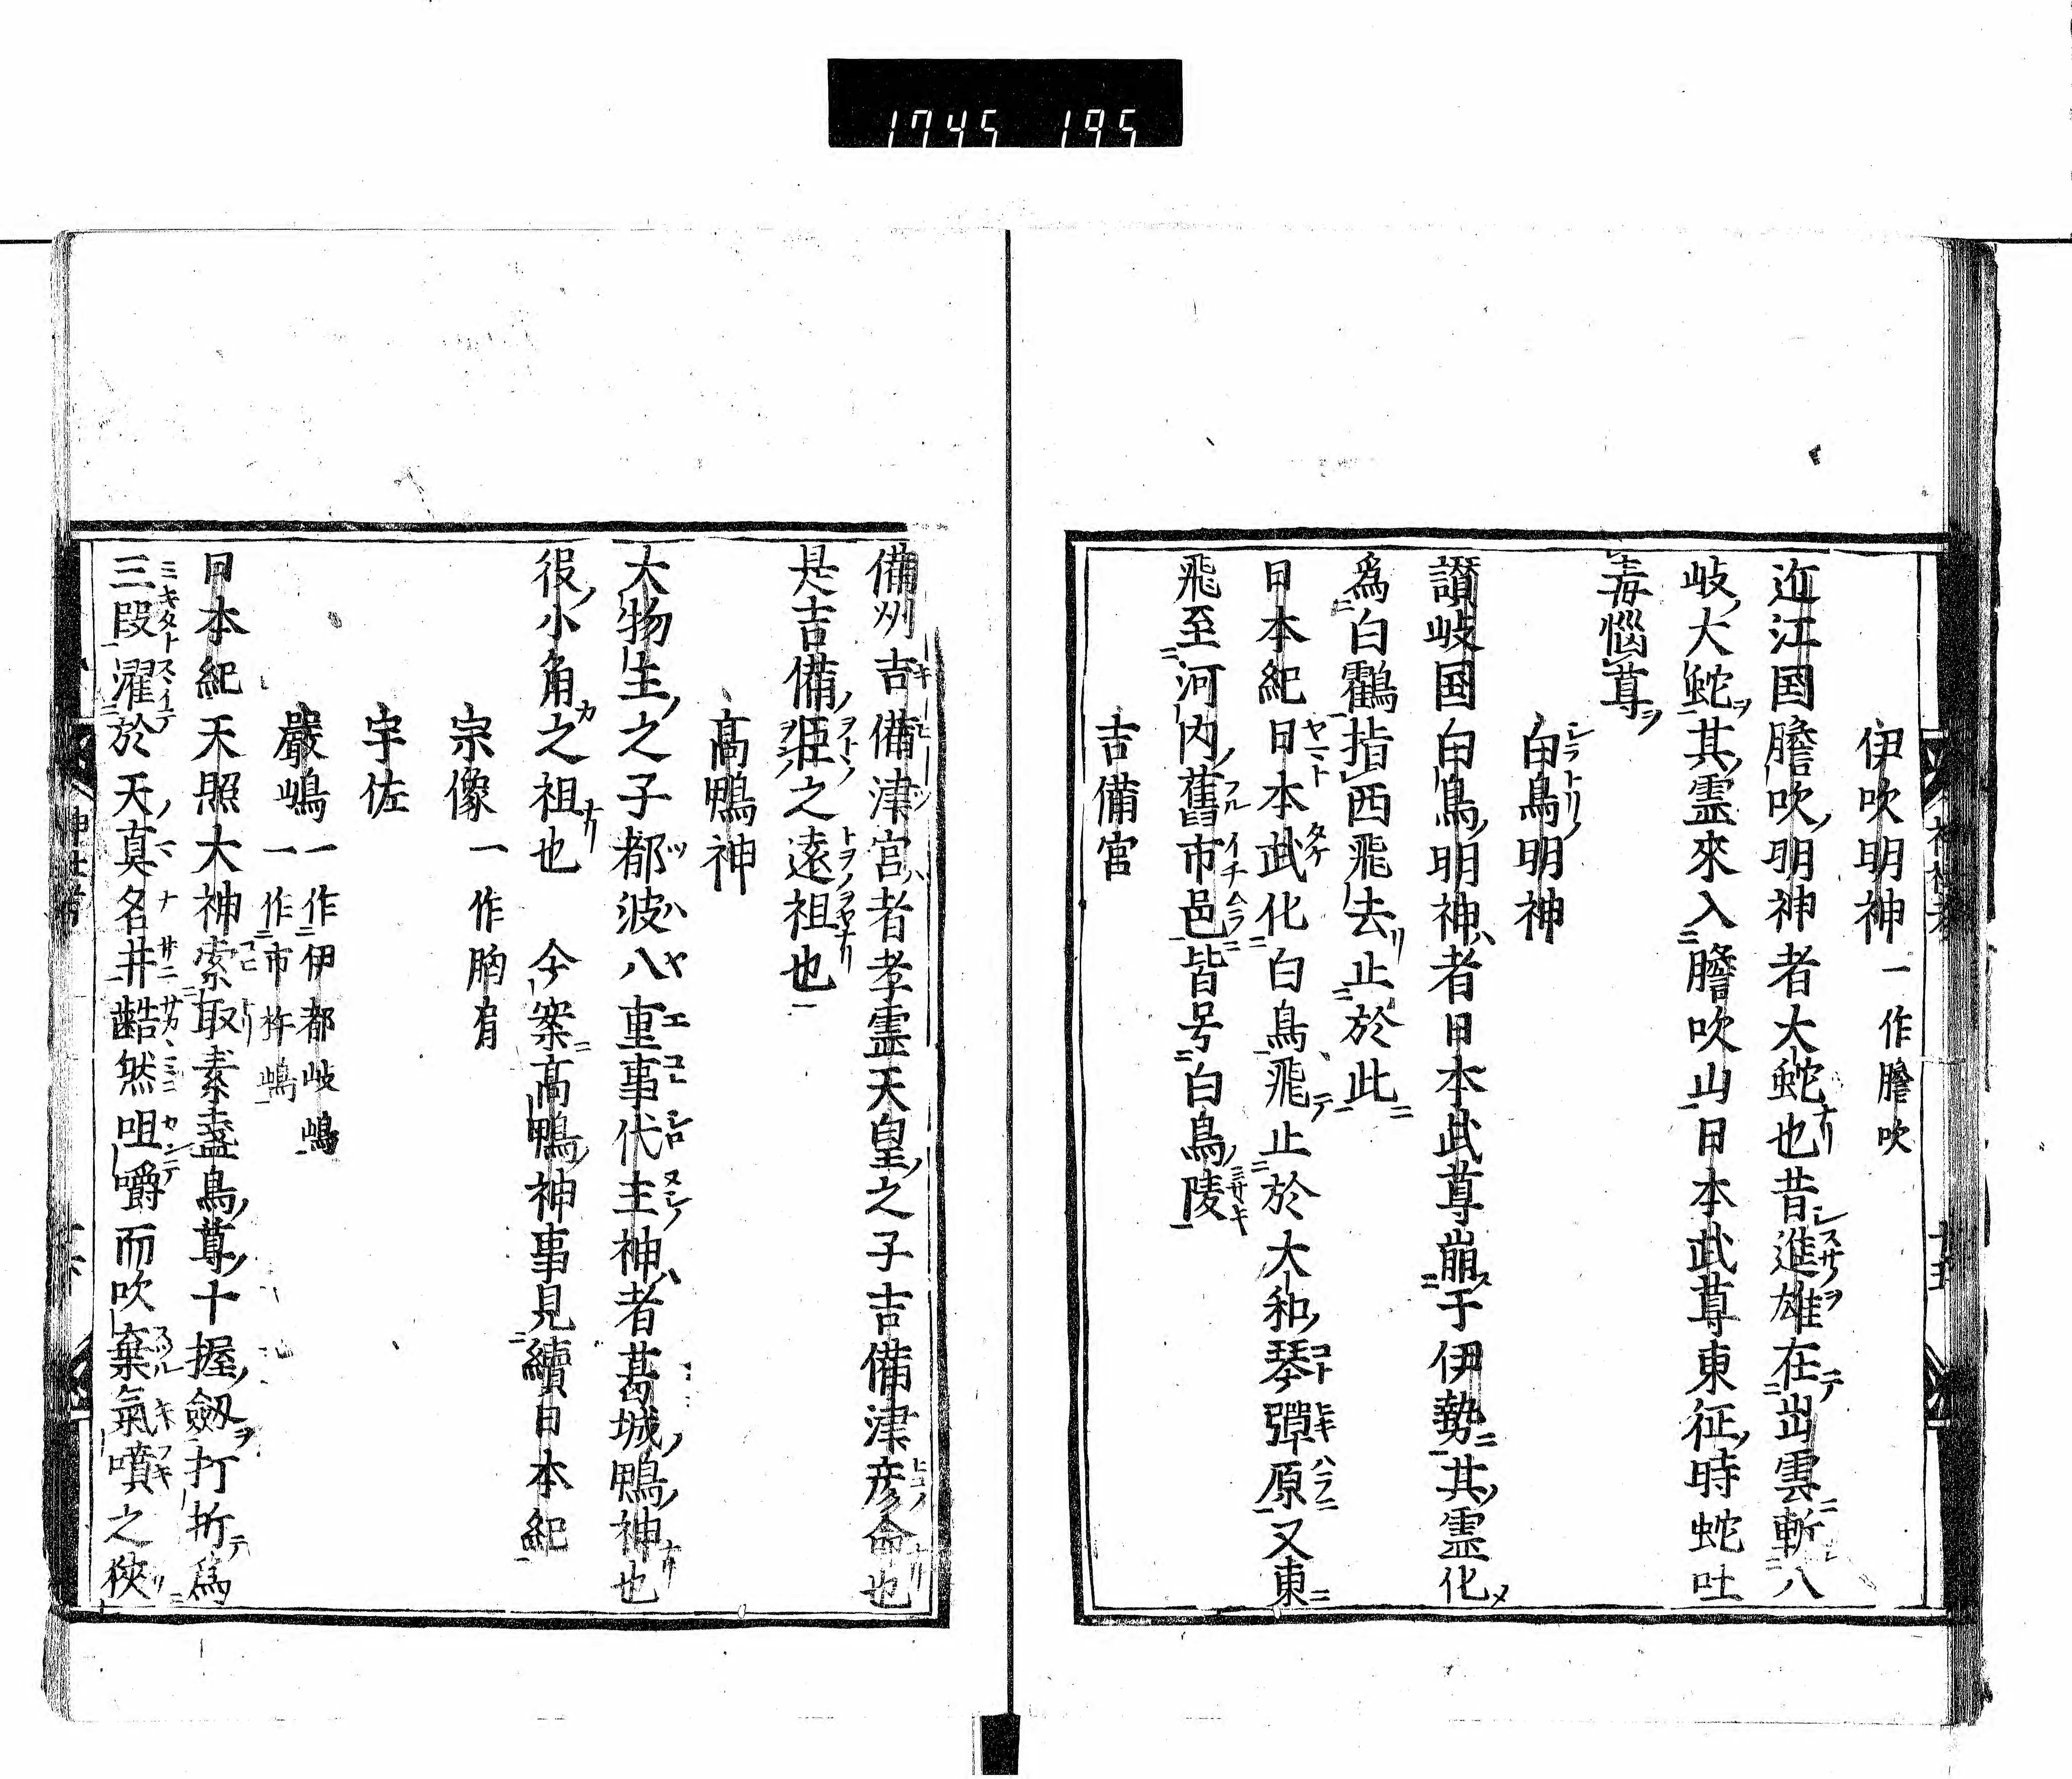 1745 195
伊吹明神 一作膽吹
近江国膽吹明神者大蛇也昔進雄在出雲斬八
岐大蛇其霊來入膽吹山日本武尊東征時蛇吐
毒惱尊
白鳥明神
讃岐国白鳥明神者日本武尊崩于伊勢其霊化
爲白鸖指西飛去止於此
日本紀日本武化白鳥飛止於大和琴彈原又東
飛至河内舊市邑皆号白鳥陵
吉備宮
備州吉備津宮者孝霊天皇之子吉備津彦命也
是吉備臣之遠祖也
髙鴨神
大物主之子都波八重事代主神者葛城鴨神也
役小角之祖也 今案髙鴨神事見續日本紀
宗像 一作胸肩
宇佐
嚴嶋 一作伊都岐嶋
一作市杵嶋
日本紀天照大神索取素盞烏尊十握劔打折爲
三段濯於天真名井齰然咀嚼而吹棄氣噴之狹